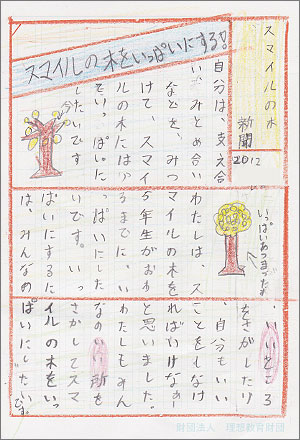 スマイルの木
新聞
2012
スマイルの木をいっぱいにする!
自分は、支え合
い、みとめ合い
などを、みつ
けて、スマイ
ルの木にはっ
ていっぱいに
したいです
いっぱいあつまったな
わたしは、ス
マイルの木を
5年生がおわ
るまでに、い
っぱいにした
いです。いっ
ぱいにするに
は、みんなの
、いいところ
をさがしたり
、自分もいい
ことをしなけ
ればいけない
と思いました。
わたしもみん
なのいい所を
さがしてスマ
イルの木をいっ
ぱいにしたいです。
財団法人 理想教育財団